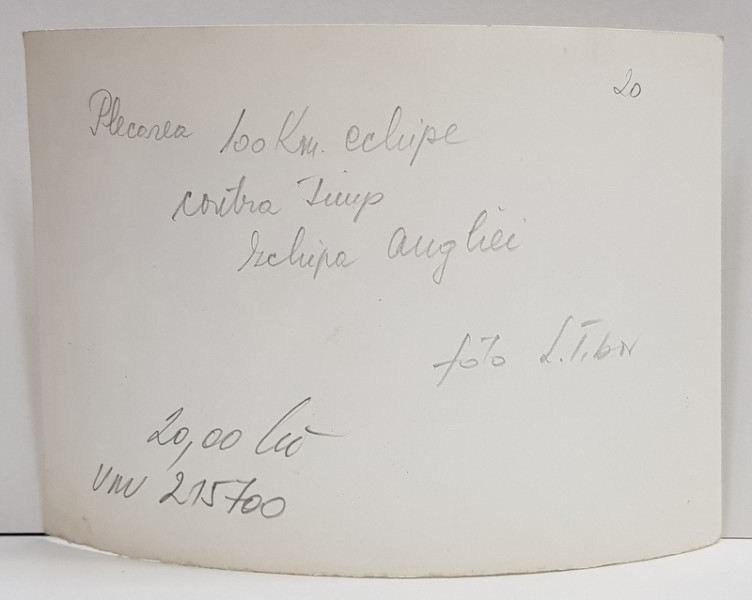 20
Plecarea 100 Km. echipe
contra Timp
Echipa Angliei
foto L. Tibor
20,00 lei
215700